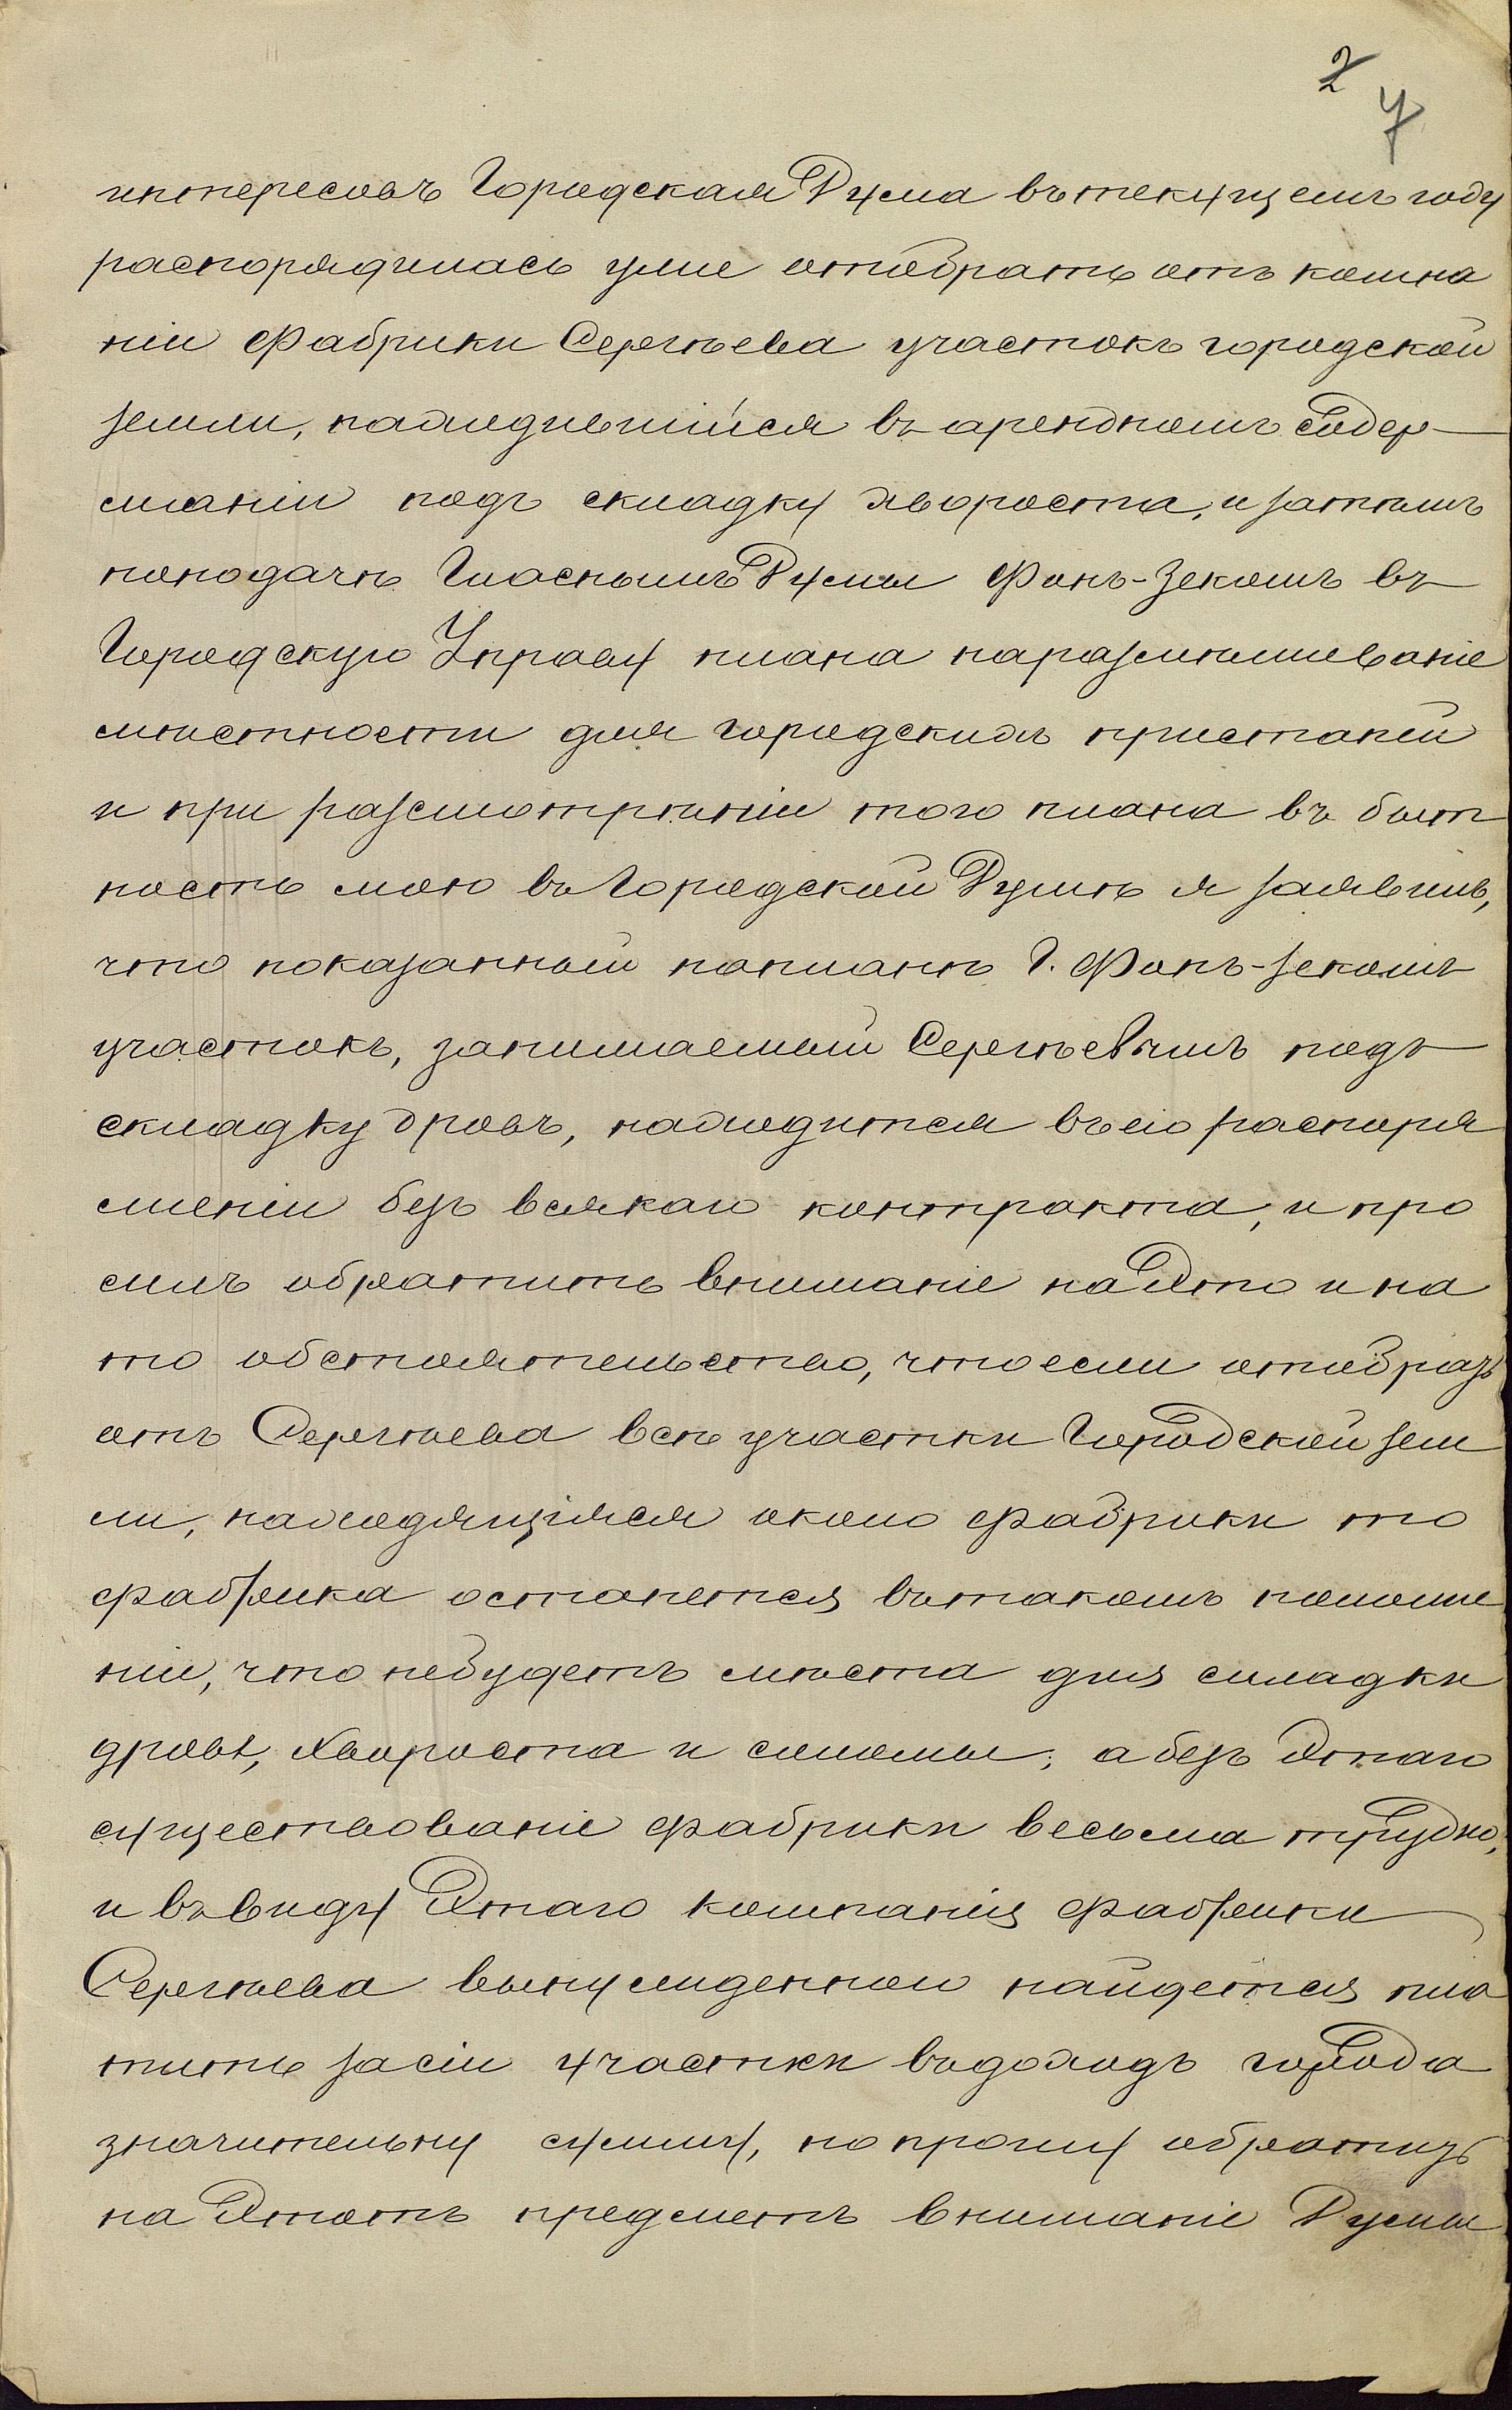 2
7
интересовъ Городская Дума въ текущемъ году
распорядилась уже отобрать отъ компа
ніи фабрики Сергѣева участокъ городской
земли, находившійся въ арендномъ содер-
жаніи подъ складку хвороста, и затѣмъ
по подачѣ Гласнымъ Думы Фонъ-Зекомъ въ
Городскую Управу плана на размѣшеваніе
мѣстности для городскихъ пристаней
и при разсмотрѣніи того плана въ быт
ность мою въ Городской Думѣ я заявилъ,
что показанный на планѣ Г. Фонъ-Зекомъ
участокъ, занимаемый Сергѣевымъ подъ
складку дровъ, находится въ его распоря
женіи безъ всякаго контракта, и про
силъ обратить вниманіе на это и на
то обстоятельство, что если отобрать
отъ Сергѣева всѣ участки Городской зем
ли, находящіяся около фабрики то
фабрика останется въ такомъ положе
ніи, что не будетъ мѣста для складки
дровъ, хвороста и соломы, а безъ этаго
существованіе фабрики весьма трудно,
и въ виду этаго компанія фабрики
Сергѣева вынужденной найдется пла
тить за сіи участки въ доходъ города
значительну сумму, но прошу обратить
на этотъ предметъ вниманіе Думы